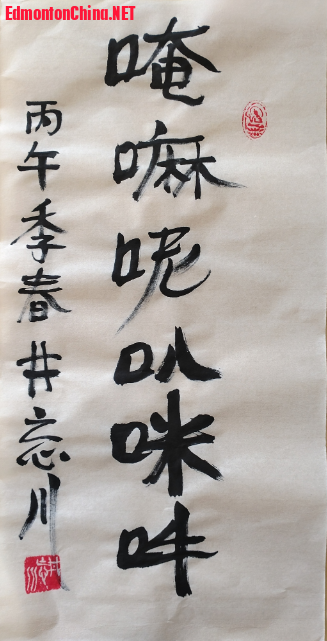 EdmontonChina.NET
唵嘛呢叭咪吽
丙午季春井忘川